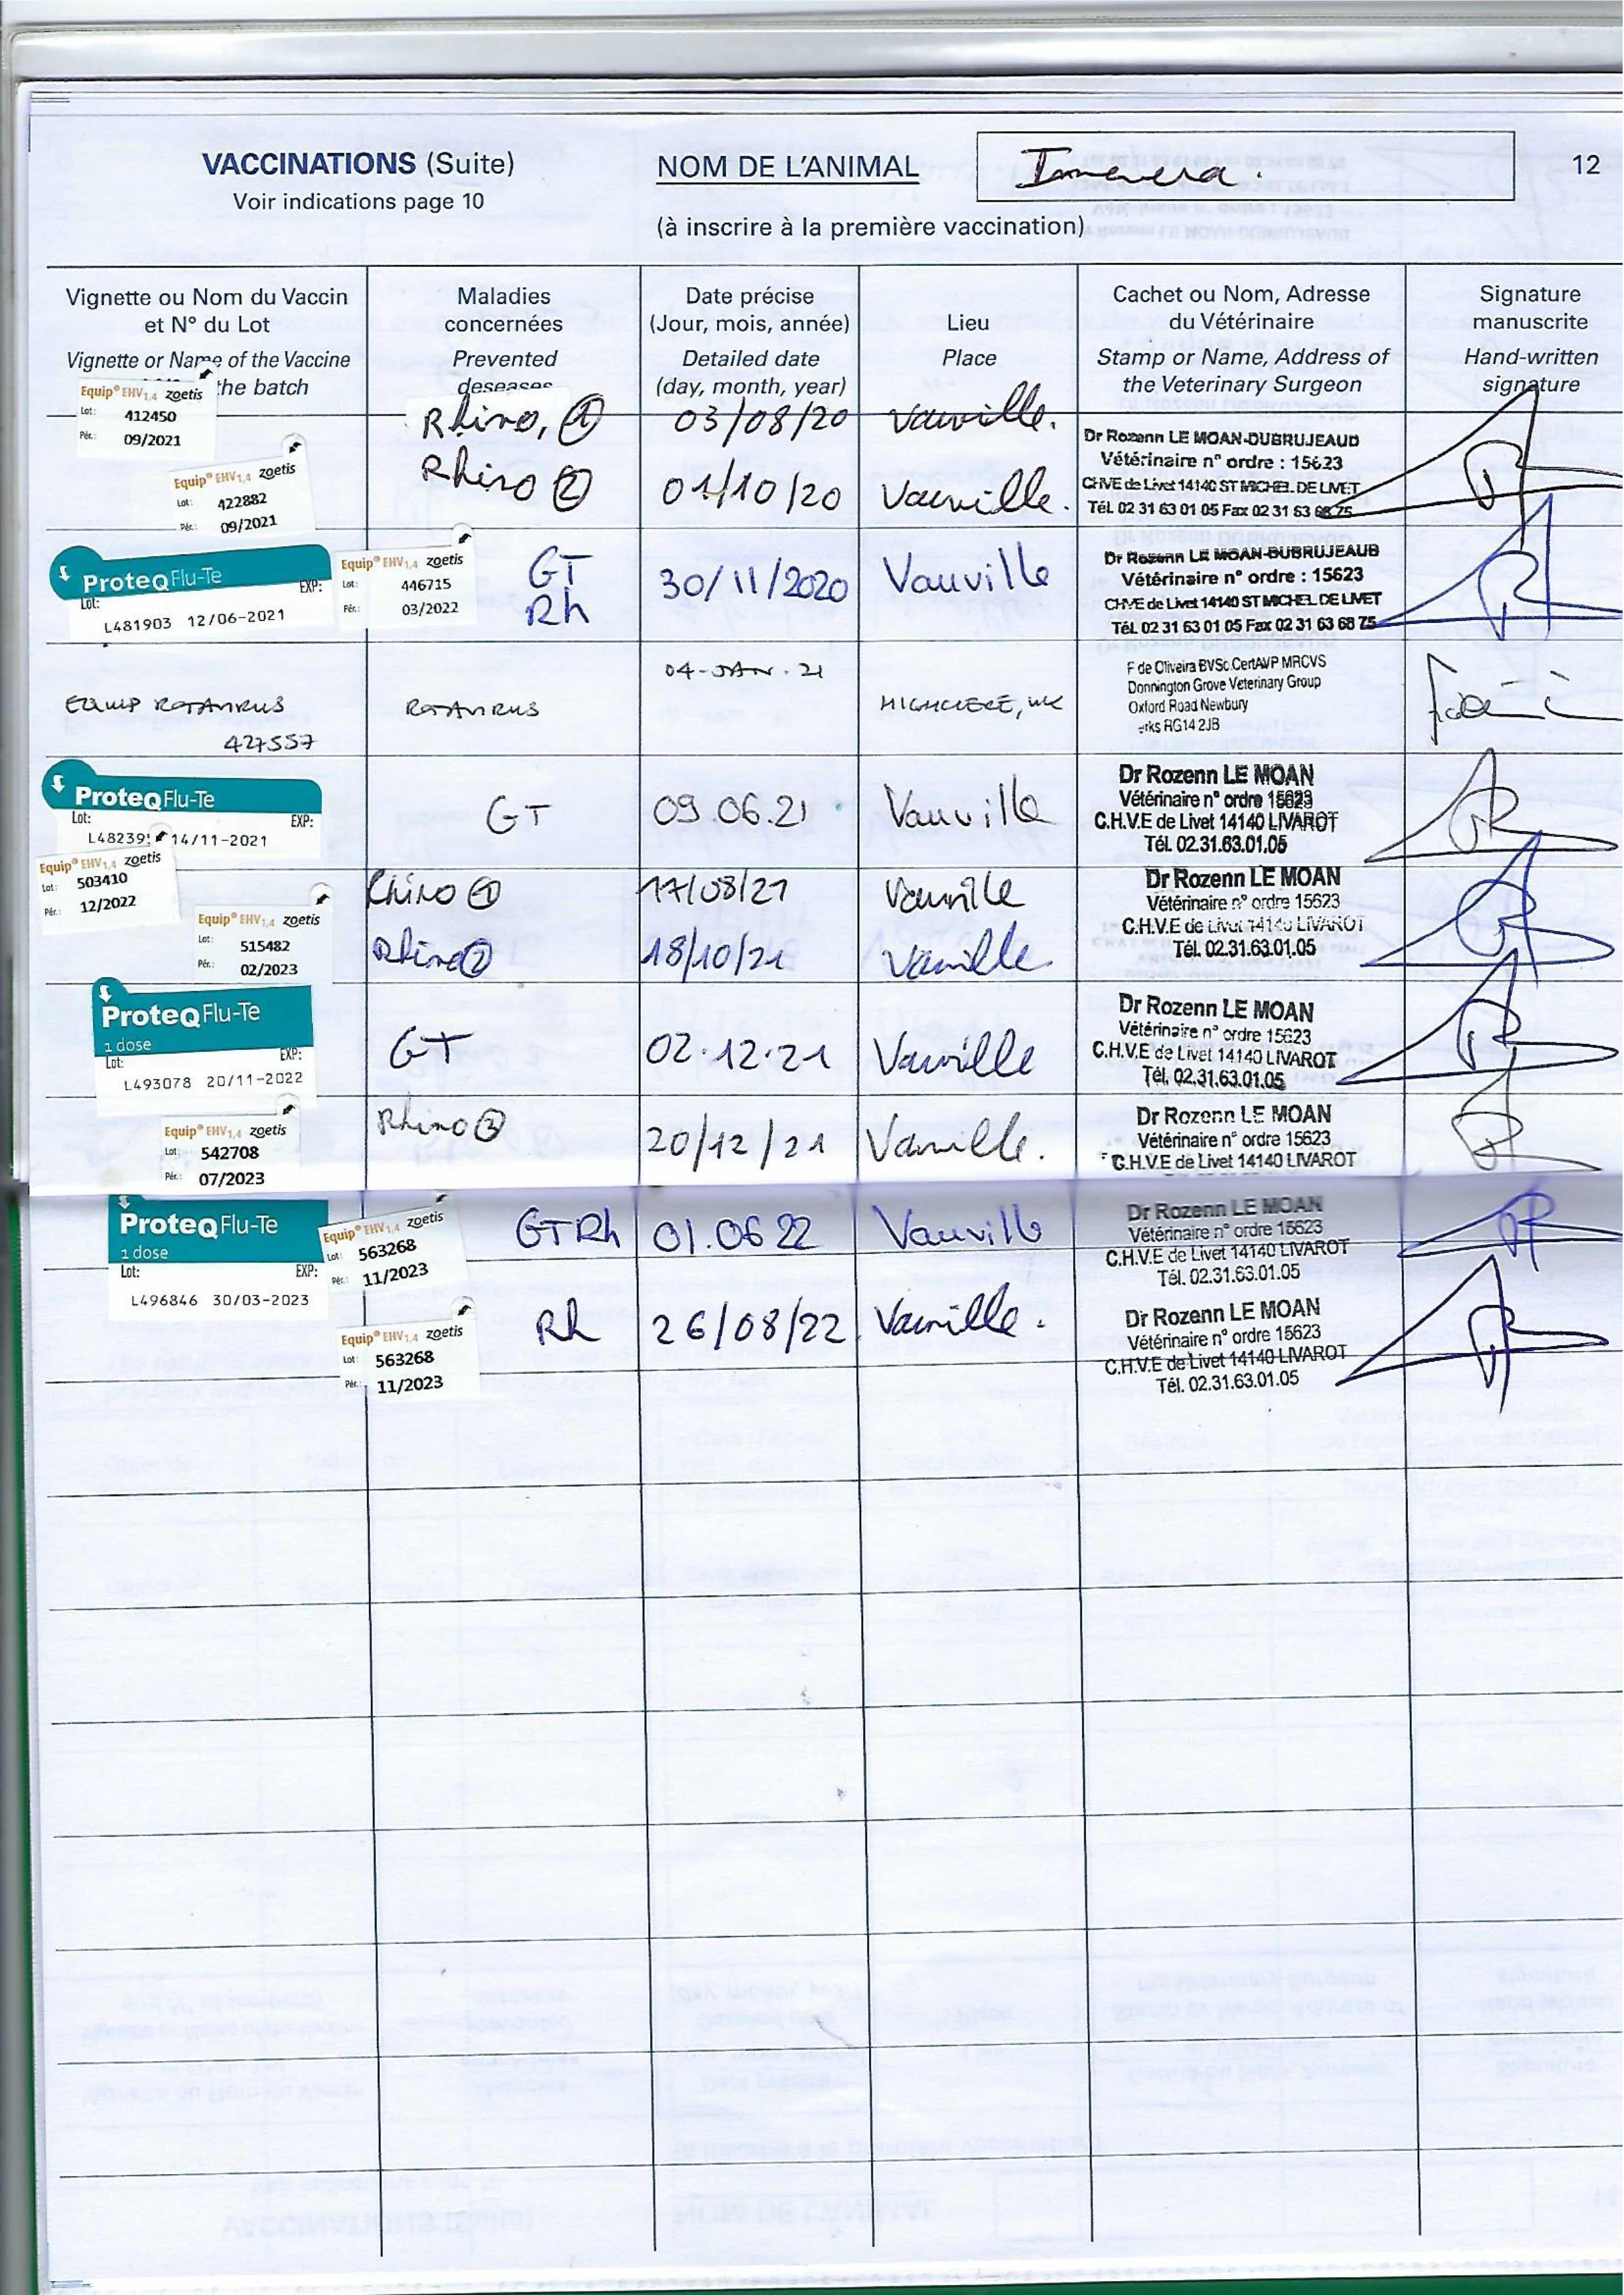 VACCINATIONS (Suite)
Voir indications page 10
NOM DE L'ANIMAL
(à inscrire à la première vaccination)
12
Vignette ou Nom du Vaccin
et N° du Lot
Vignette or Name of the Vaccine
the batch
Maladies
concernées
Prevented
deseases
Date précise
(Jour, mois, année)
Detailed date
(day, month, year)
Lieu
Place
Cachet ou Nom, Adresse
du Vétérinaire
Stamp or Name, Address of
the Veterinary Surgeon
Signature
manuscrite
Hand-written
signature
Equip® EHV1,4 zoetis
Lot: 412450
Pér.: 09/2021
Rhino, ①
03/08/20
Vauville.
Equip® EHV1,4 zoetis
Lot: 422882
Pér.: 09/2021
Rhino ②
01/10/20
Vauville.
Dr Rozenn LE MOAN-DUBRUJEAUD
Vétérinaire n° ordre : 15623
CHVE de Livet 14140 ST MICHEL DE LIVET
Tél. 02 31 63 01 05 Fax 02 31 63 68 75
ProteqFlu-Te
Lot: EXP:
L481903 12/06-2021
Equip® EHV1,4 zoetis
Lot: 446715
Pér.: 03/2022
GT
Rh
30/11/2020
Vauville
Dr Rozenn LE MOAN-DUBRUJEAUD
Vétérinaire n° ordre : 15623
CHVE de Livet 14140 ST MICHEL DE LIVET
Tél. 02 31 63 01 05 Fax 02 31 63 68 75
EQUIP ROTAVIRUS
427557
ROTAVIRUS
04-JAN.21
HIGHCLERE, UK
F de Oliveira BVSc CertAVP MRCVS
Donnington Grove Veterinary Group
Oxford Road Newbury
erks RG14 2JB
ProteqFlu-Te
Lot: EXP:
L48239 14/11-2021
GT
09.06.21
Vauville
Dr Rozenn LE MOAN
Vétérinaire n° ordre 15623
C.H.V.E de Livet 14140 LIVAROT
Tél. 02.31.63.01.05
Equip® EHV1,4 zoetis
Lot: 503410
Pér.: 12/2022
Rhino ①
17/08/21
Vauville
Equip® EHV1,4 zoetis
Lot: 515482
Pér.: 02/2023
Rhino ②
18/10/21
Vauville.
Dr Rozenn LE MOAN
Vétérinaire n° ordre 15623
C.H.V.E de Livet 14140 LIVAROT
Tél. 02.31.63.01.05
ProteqFlu-Te
1 dose
Lot: EXP:
L493078 20/11-2022
GT
02.12.21
Vauville
Dr Rozenn LE MOAN
Vétérinaire n° ordre 15623
C.H.V.E de Livet 14140 LIVAROT
Tél. 02.31.63.01.05
Equip® EHV1,4 zoetis
Lot: 542708
Pér.: 07/2023
Rhino ③
20/12/21
Vauville.
Dr Rozenn LE MOAN
Vétérinaire n° ordre 15623
C.H.V.E de Livet 14140 LIVAROT
ProteqFlu-Te
1 dose
Lot: EXP:
L496846 30/03-2023
Equip® EHV1,4 zoetis
Lot: 563268
Pér.: 11/2023
GTRh
01.06 22
Vauville
Dr Rozenn LE MOAN
Vétérinaire n° ordre 15623
C.H.V.E de Livet 14140 LIVAROT
Tél. 02.31.63.01.05
Equip® EHV1,4 zoetis
Lot: 563268
Pér.: 11/2023
Rh
26/08/22
Vauville.
Dr Rozenn LE MOAN
Vétérinaire n° ordre 15623
C.H.V.E de Livet 14140 LIVAROT
Tél. 02.31.63.01.05